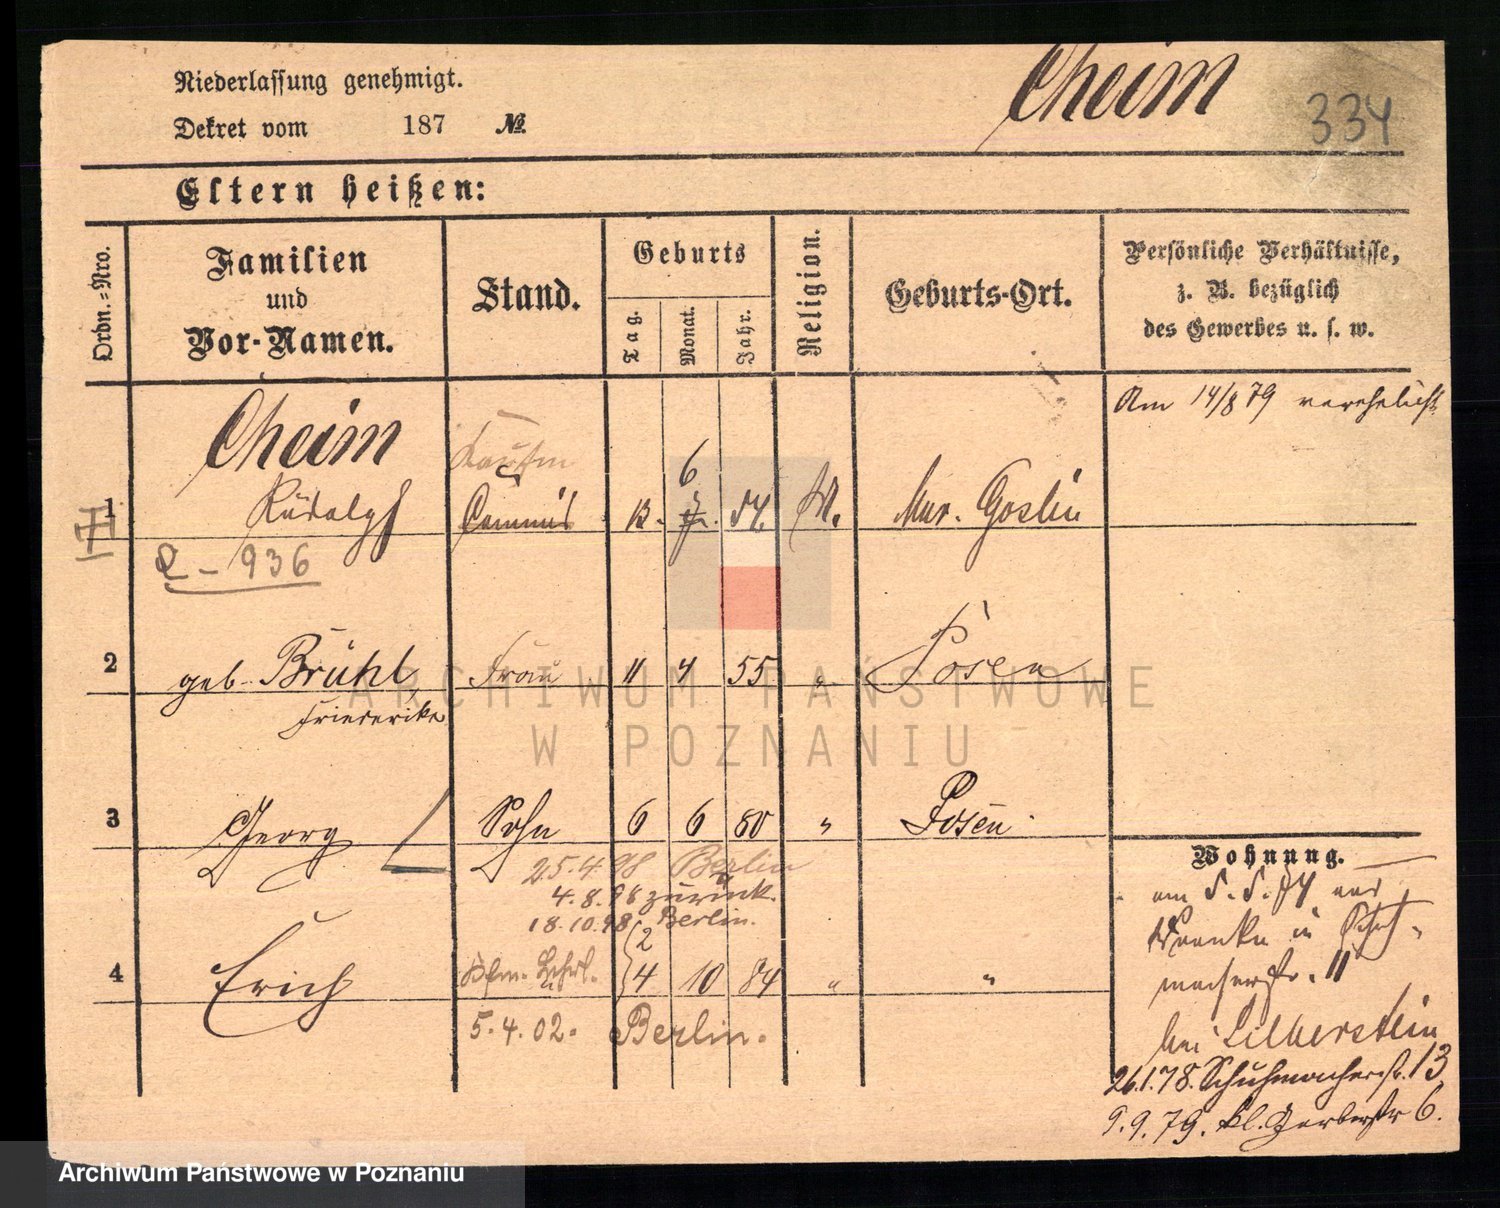 Niederlassung genehmigt.
Dekret vom 187 №
Cheim
334
Eltern heißen:
Ordn.-Nro.
Familien
und
Vor-Namen.
Stand.
Geburts
Tag.
Monat.
Jahr.
Religion.
Geburts-Ort.
Persönliche Verhältnisse,
z. B. bezüglich
des Gewerbes u. s. w.
Am 14/8 79 verehelicht
Cheim
Kaufm
6
1 Rudolph Commis 13. 54. M. Mur. Goslin
Q - 936
2 geb. Brühl, Frau 11 4 55 " Posen
Friederike
3 Georg Sohn 6 6 80 " Posen
25.4.98 Berlin
4.8.98 zurück.
18.10.98 Berlin.
2
4 Erich Kfm. Lehrl. 4 10 84 " "
5.4.02. Berlin.
Wohnung.
am 5.5.74 aus
Wronke in Schuh-
macherstr. 11
bei Silberstein
26.1.78. Schuhmacherstr. 13
9.9.79. kl. Gerberstr 6.
ARCHIWUM PAŃSTWOWE
W POZNANIU
Archiwum Państwowe w Poznaniu